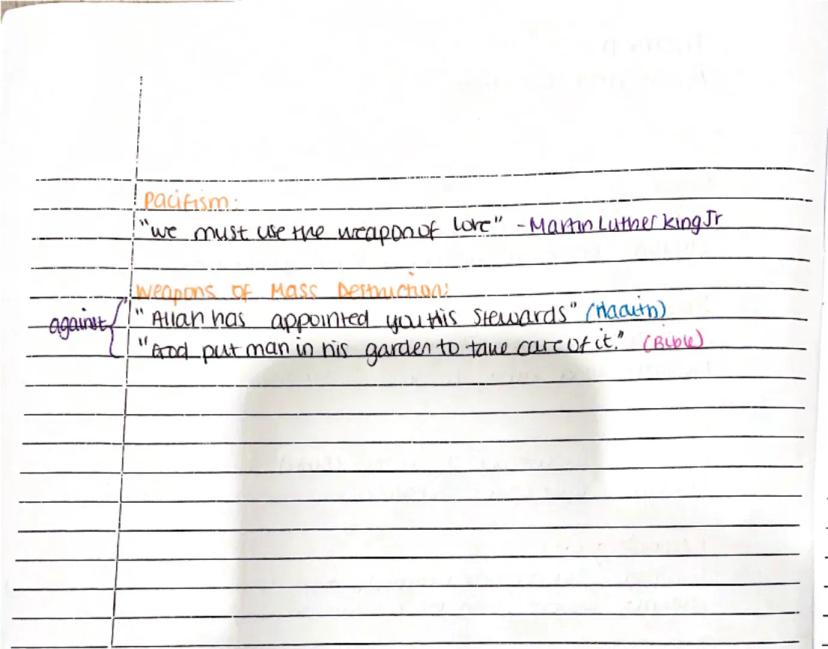 Pacifism:
"we must use the weapon of love" - Martin Luther King Jr
Weapons of Mass Destruction:
against { "Allah has appointed you His stewards" (Hadith)
"God put man in his garden to take care of it." (Bible)